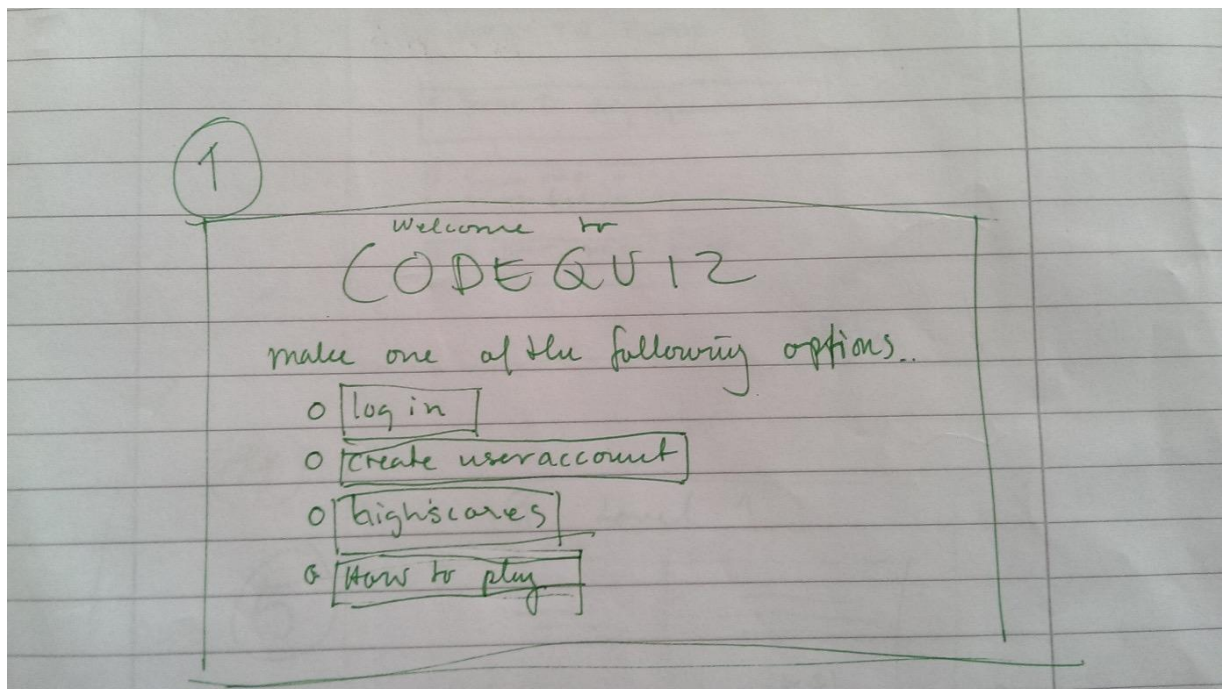 1
Welcome to
CODEQUIZ
make one of the following options..
log in
create useraccount
highscores
How to play